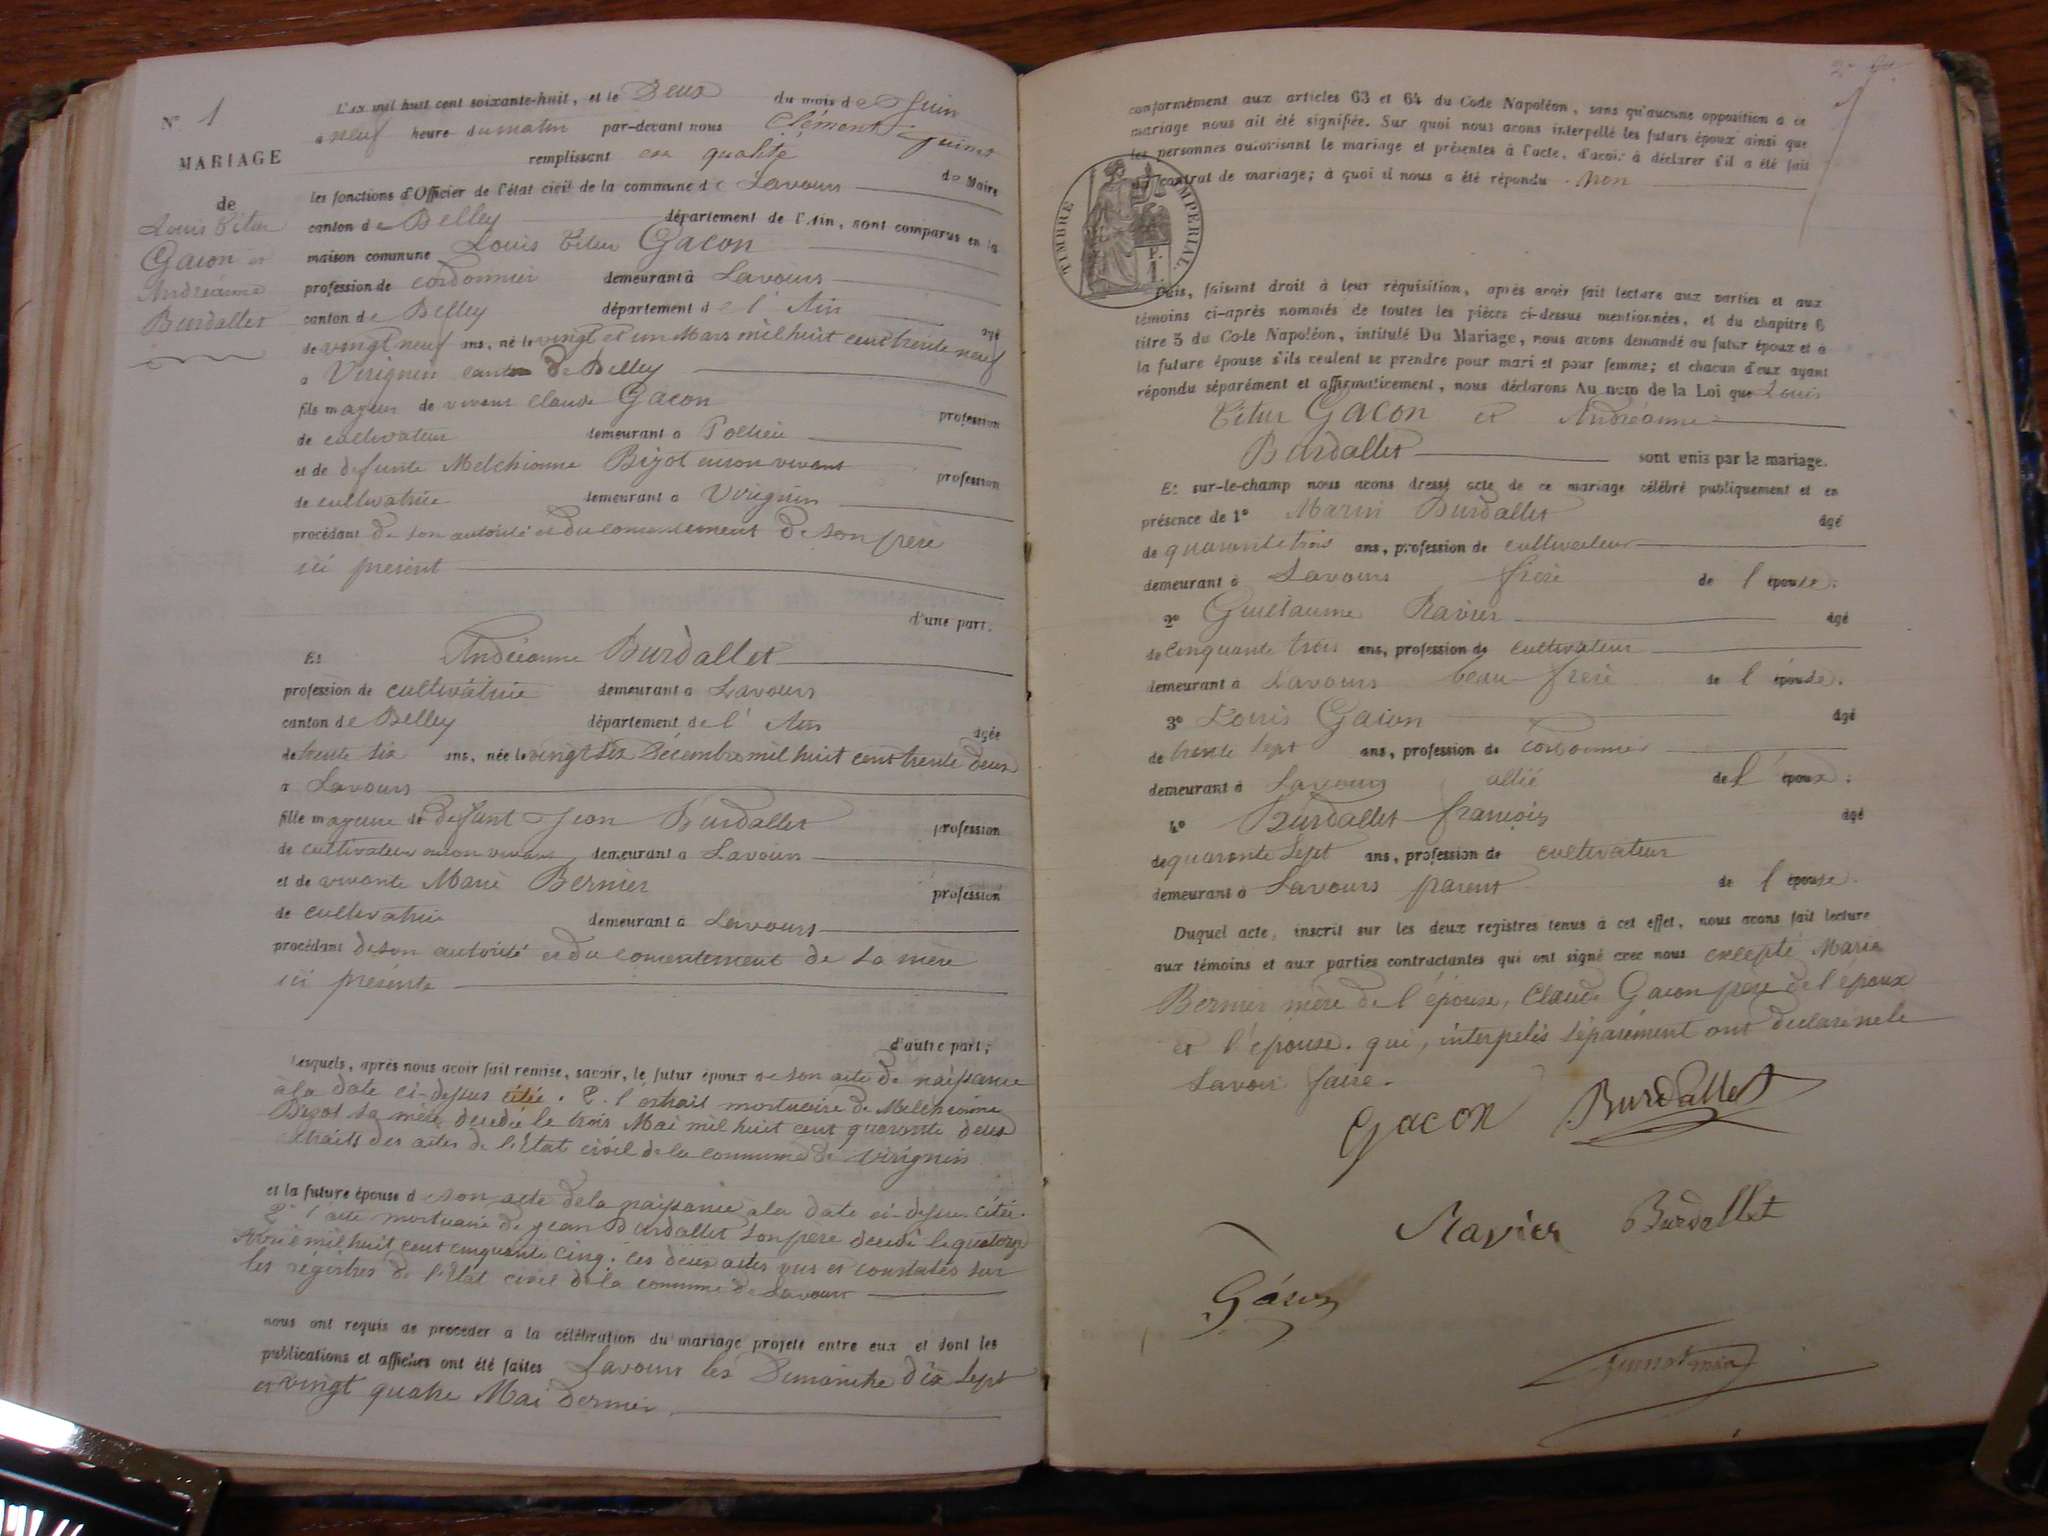 N° 1
MARIAGE
de
Louis Titus
Gacon et
Andréanne
Burdallet
L'an mil huit cent soixante-huit, et le Deux du mois de Juin
à neuf heure du matin par-devant nous Clément Guinet
remplissant en qualité de Maire
les fonctions d'Officier de l'état civil de la commune de Lavours
canton de Belley département de l'Ain, sont comparus en la
maison commune Louis Titus Gacon
profession de cordonnier demeurant à Lavours
canton de Belley département de l'Ain âgé
de vingt neuf ans, né le vingt et un Mars mil huit cent trente neuf
à Virignin canton de Belley
fils majeur de vivant Claude Gacon profession
de cultivateur demeurant à Pollieu
et de defunte Melchionne Bizot en son vivant profession
de cultivatrice demeurant à Virignin
procédant de son autorité et du consentement de son père
ici présent
d'une part.
Et Andréanne Burdallet
profession de cultivatrice demeurant à Lavours
canton de Belley département de l'Ain âgée
de trente six ans, née le vingt six Décembre mil huit cent trente deux
à Lavours
fille majeure de defunt Jean Burdallet profession
de cultivateur en son vivant demeurant à Lavours
et de vivante Marie Bernier profession
de cultivatrice demeurant à Lavours
procédant de son autorité et du consentement de sa mère
ici présente
d'autre part;
Lesquels, après nous avoir fait remise, savoir, le futur époux de son acte de naissance
à la date ci-dessus citée. 2. l'extrait mortuaire de Melchionne
Bizot sa mère décédée le trois Mai mil huit cent quarante deux
extraits des actes de l'Etat civil de la commune de Virignin
et la future épouse de son acte de la naissance à la date ci-dessus citée.
2° l'acte mortuaire de Jean Burdallet son père décédé le quatorze
Avril mil huit cent cinquante cinq. ces deux actes vus et constatés sur
les régistres de l'Etat civil de la commune de Lavours
nous ont requis de procéder à la célébration du mariage projeté entre eux et dont les
publications et affiches ont été faites Lavours les Dimanche dix sept
et vingt quatre Mai dernier
conformément aux articles 63 et 64 du Code Napoléon, sans qu'aucune opposition à ce
mariage nous ait été signifiée. Sur quoi nous avons interpellé les futurs époux ainsi que
les personnes autorisant le mariage et présentes à l'acte, d'avoir à déclarer s'il a été fait
un contrat de mariage; à quoi il nous a été répondu non
TIMBRE IMPERIAL
Puis, faisant droit à leur réquisition, après avoir fait lecture aux parties et aux
témoins ci-après nommés de toutes les pièces ci-dessus mentionnées, et du chapitre 6
titre 5 du Code Napoléon, intitulé Du Mariage, nous avons demandé au futur époux et à
la future épouse s'ils veulent se prendre pour mari et pour femme; et chacun d'eux ayant
répondu séparément et affirmativement, nous déclarons Au nom de la Loi que Louis
Titus Gacon et Andréanne
Burdallet sont unis par le mariage.
Et sur-le-champ nous avons dressé acte de ce mariage célébré publiquement et en
présence de 1° Marin Burdallet âgé
de quarante trois ans, profession de cultivateur
demeurant à Lavours frère de l'épouse;
2° Guillaume Ravier âgé
de cinquante trois ans, profession de cultivateur
demeurant à Lavours beau-frère de l'épouse;
3° Louis Gacon âgé
de trente sept ans, profession de cordonnier
demeurant à Lavours allié de l'époux;
4° Burdallet françois âgé
de quarante sept ans, profession de cultivateur
demeurant à Lavours parent de l'épouse.
Duquel acte, inscrit sur les deux registres tenus à cet effet, nous avons fait lecture
aux témoins et aux parties contractantes qui ont signé avec nous excepté Marie
Bernier mère de l'épouse, Claude Gacon père de l'époux
et l'épouse. qui, interpelés séparément ont déclaré ne le
savoir faire.
Gacon Burdallet
Ravier Burdallet
Gacon
Guinet maire